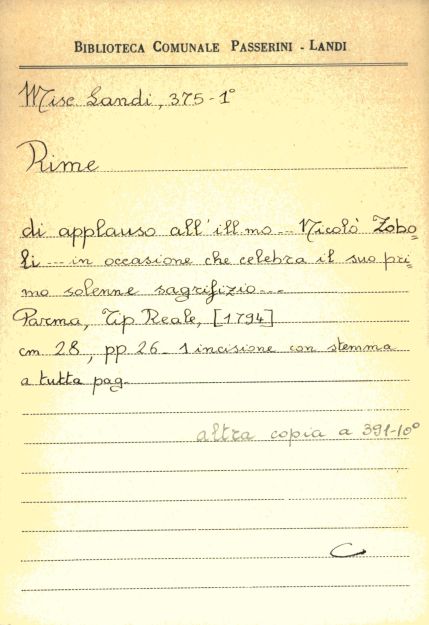 BIBLIOTECA COMUNALE PASSERINI - LANDI
Misc Landi, 375-1°
Rime
di applauso all'ill.mo ... Nicolò Zobo=
li ... in occasione che celebra il suo pri=
mo solenne sagrifizio ...
Parma, Tip Reale, [1794]
cm 28, pp 26 - 1 incisione con stemma
a tutta pag.
altra copia a 391-10°
C